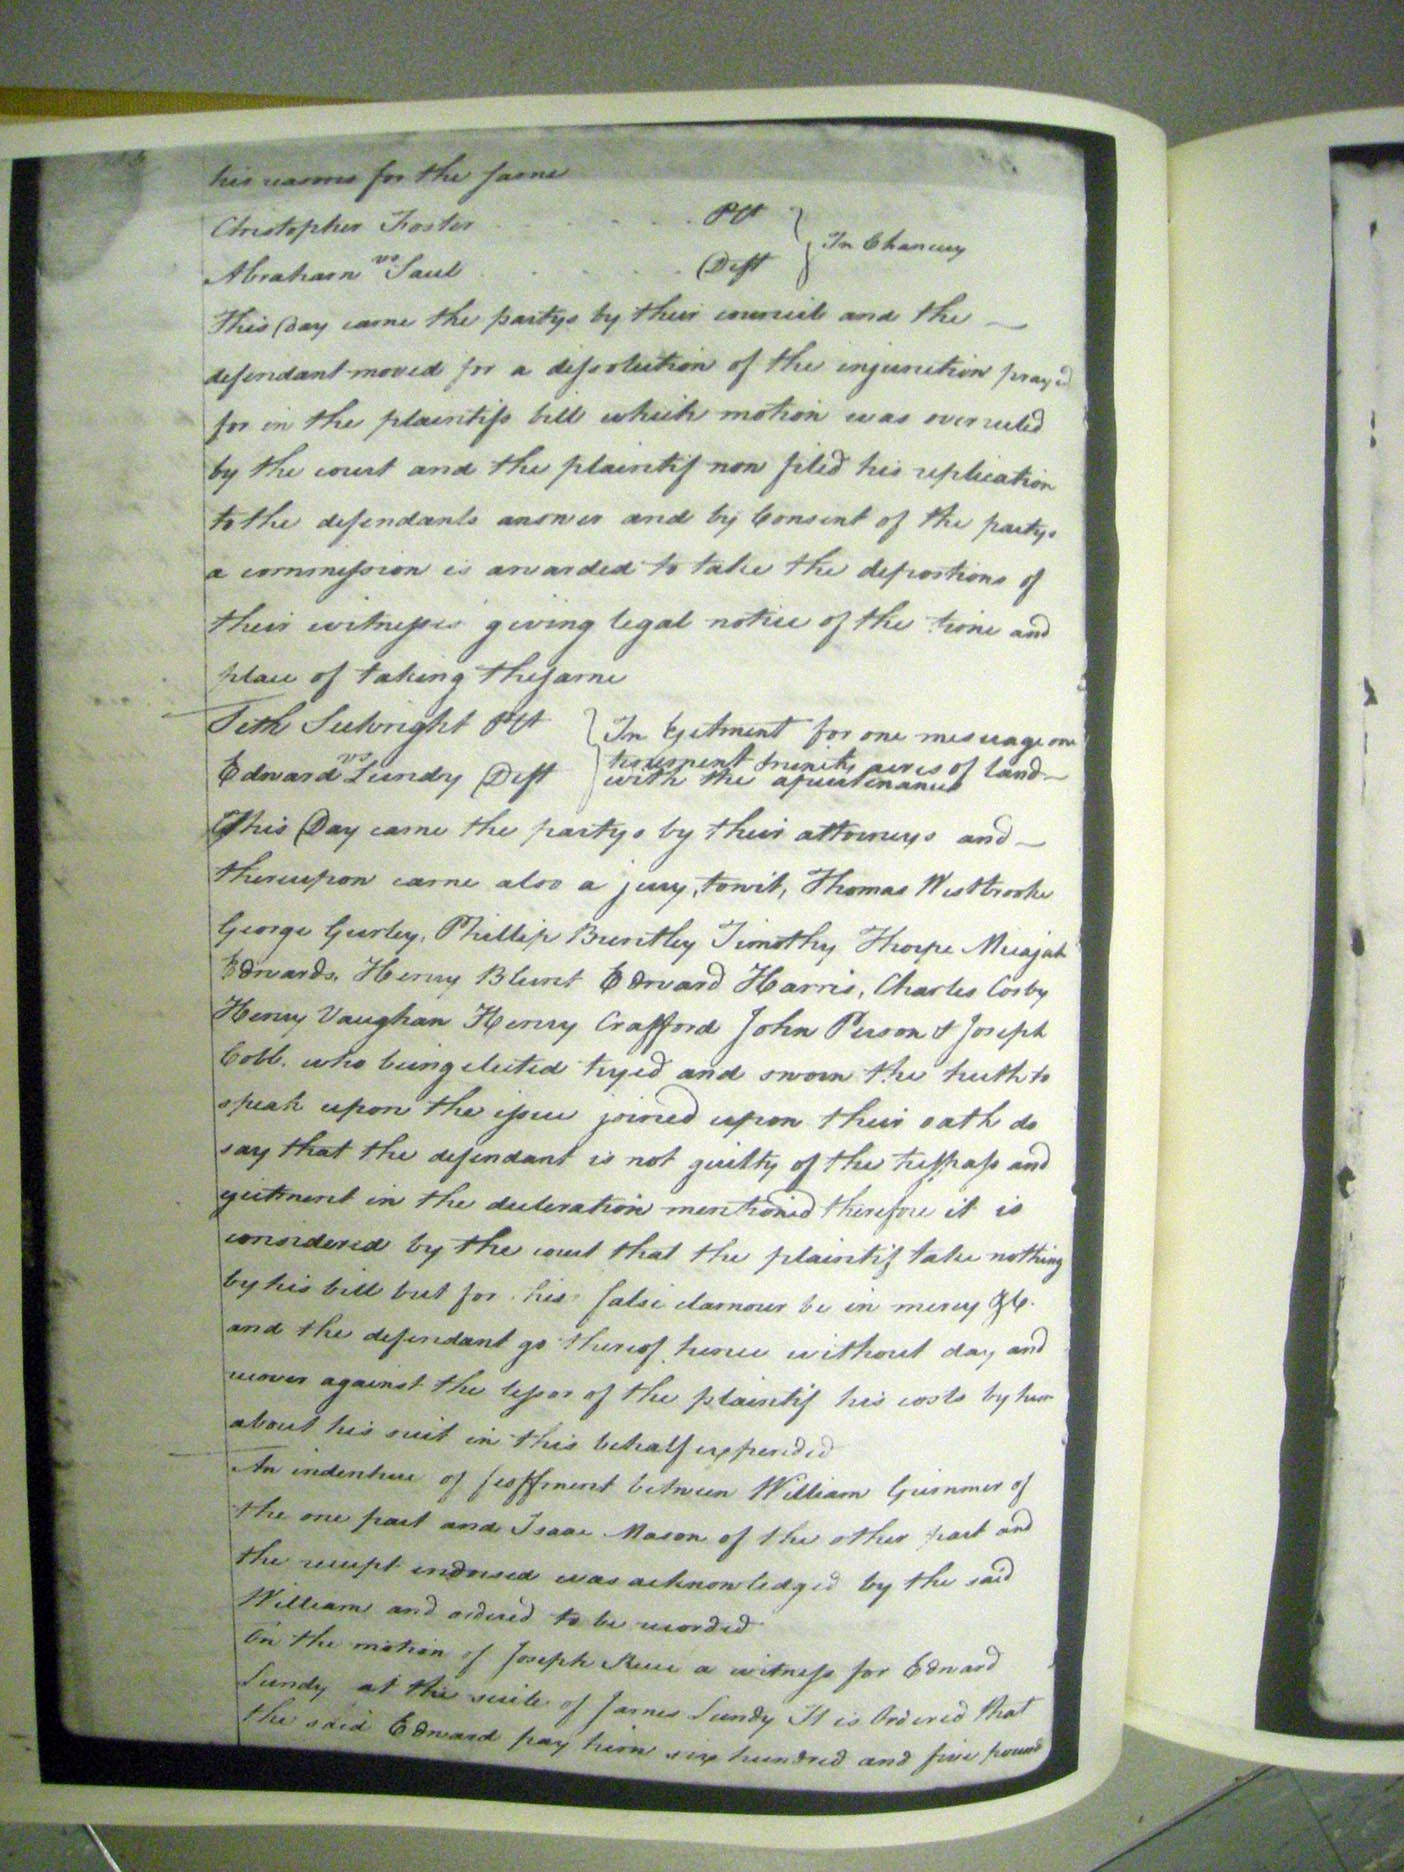 his reasons for the same
Christopher Foster Plt
vs } In Chancery
Abraham Saul Deft
This Day came the partys by their council and the
defendant moved for a dissolution of the injunction prayed
for in the plaintifs bill which motion was overruled
by the court and the plaintif now filed his replication
to the defendants answer and by Consent of the partys
a commission is awarded to take the depositions of
their witnesses giving legal notice of the time and
place of taking the same
Seth Seekright Plt } In Ejetment for one mesuage one
vs tenement acres of land
Edward Lundy Deft with the apurtenances
This Day came the partys by their attorneys and
thereupon came also a jury, towit, Thomas Westbrooke
George Gurley, Phillip Bruntley Timothy Thorpe Micajah
Edwards, Henry Blunt Edward Harris, Charles Cosby
Henry Vaughan Henry Crafford John Person & Joseph
Cobb. who being elected tryed and sworn the truth to
speak upon the issue joined upon their oath do
say that the defendant is not guilty of the trespass and
ejectment in the decleration mentioned therefore it is
considered by the court that the plaintif take nothing
by his bill but for his false clamour be in mercy &c.
and the defendant go thereof hence without day and
recover against the lessor of the plaintif his costs by him
about his suit in this behalf expended
An indenture of feoffment between William Grimmer of
the one part and Isaac Mason of the other part and
the receipt endorsed was acknowledged by the said
William and ordered to be recorded
On the motion of Joseph a witness for Edward
Lundy at the suite of James Lundy It is Ordered that
the said Edward pay him six hundred and five pound